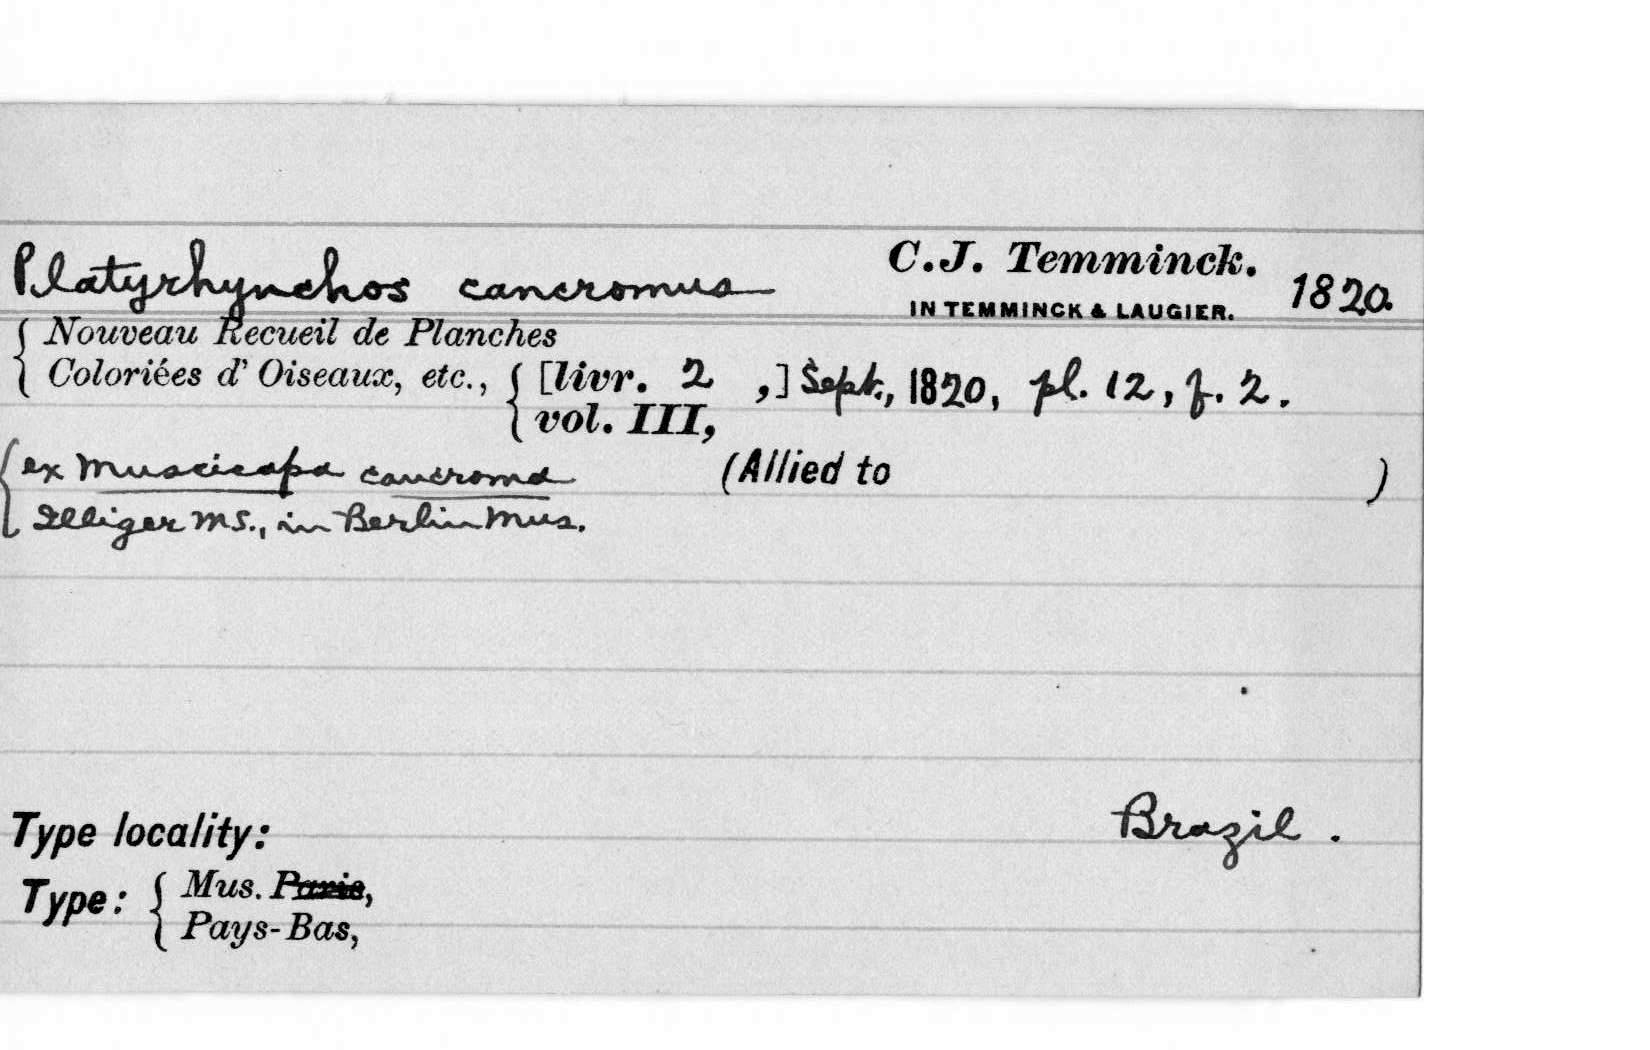 Platyrhynchos cancromus C.J. Temminck. 1820.
IN TEMMINCK & LAUGIER.
Nouveau Recueil de Planches
Coloriées d' Oiseaux, etc., [livr. 2 ,] Sept., 1820, pl. 12, f. 2.
vol. III,
ex Muscicapa cancroma (Allied to )
Illiger MS., in Berlin Mus.
Type locality: Brazil.
Type: Mus. Paris,
Pays-Bas,